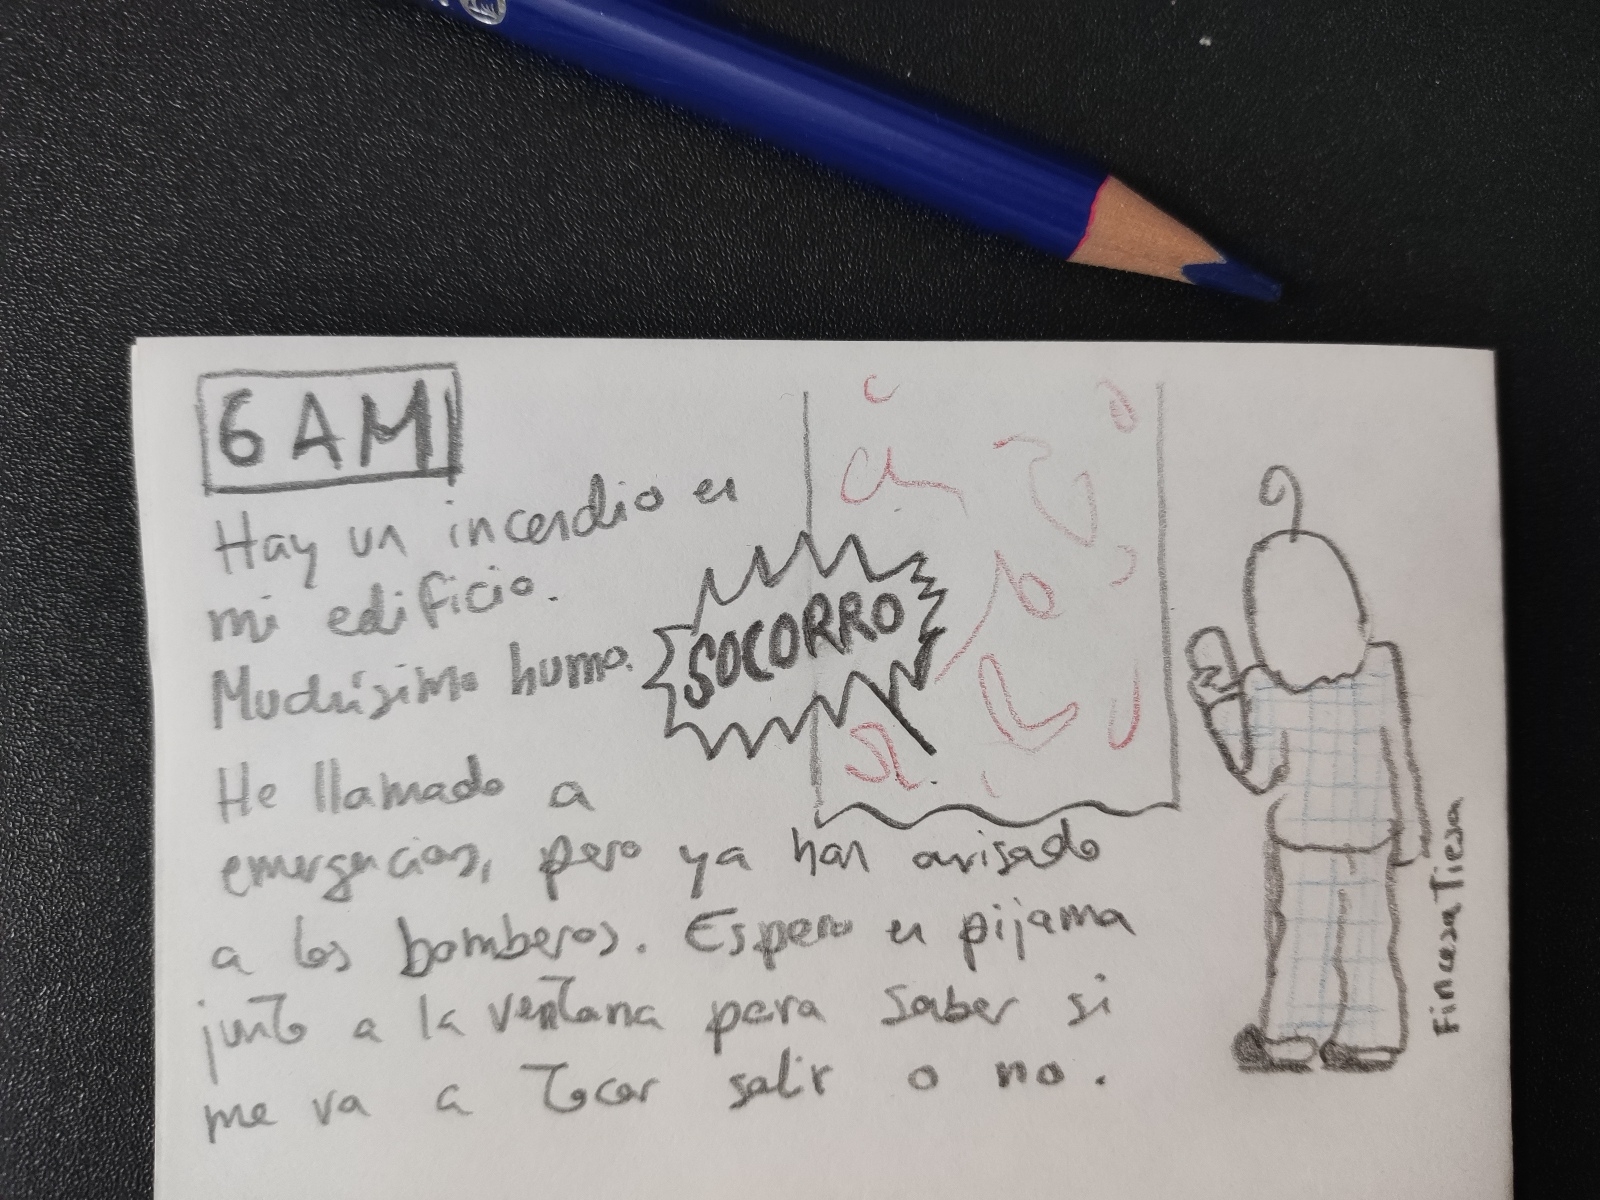 6 AM
Hay un incendio en
mi edificio.
Muchísimo humo.
SOCORRO
He llamado a
emergencias, pero ya han avisado
a los bomberos. Espero en pijama
junto a la ventana para saber si
me va a tocar salir o no.
Fincesa Tiesa